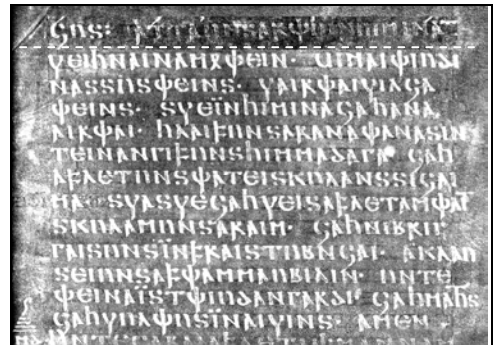 𐌾𐌿𐍃: 𐌰𐍄𐍄𐌰𐌿𐌽𐍃𐌰𐍂𐌸𐌿𐌹̈𐌽𐌷𐌹𐌼𐌹𐌽𐌰𐌼
𐍅𐌴𐌹𐌷𐌽𐌰𐌹𐌽𐌰𐌼𐍉𐌸𐌴𐌹𐌽· 𐌵𐌹𐌼𐌰𐌹𐌸𐌹𐌿𐌳𐌹
𐌽𐌰𐍃𐍃𐌿𐍃𐌸𐌴𐌹𐌽𐍃· 𐍅𐌰𐌹𐍂𐌸𐌰𐌹𐍅𐌹𐌻𐌾𐌰
𐌸𐌴𐌹𐌽𐍃· 𐍃𐍅𐌴𐌹̈𐌽𐌷𐌹𐌼𐌹𐌽𐌰𐌾𐌰𐌷𐌰𐌽𐌰
𐌰𐌹𐍂𐌸𐌰𐌹· 𐌷𐌻𐌰𐌹𐍆𐌿𐌽𐍃𐌰𐍂𐌰𐌽𐌰𐌸𐌰𐌽𐌰𐍃𐌹𐌽
𐍄𐌴𐌹𐌽𐌰𐌽𐌲𐌹𐍆𐌿𐌽𐍃𐌷𐌹𐌼𐌼𐌰𐌳𐌰𐌲𐌰· 𐌾𐌰𐌷
𐌰𐍆𐌻𐌴𐍄𐌿𐌽𐍃𐌸𐌰𐍄𐌴𐌹𐍃𐌺𐌿𐌻𐌰𐌽𐍃𐍃𐌹𐌾𐌰𐌹
𐌼𐌰· 𐍃𐍅𐌰𐍃𐍅𐌴𐌾𐌰𐌷𐍅𐌴𐌹𐍃𐌰𐍆𐌻𐌴𐍄𐌰𐌼𐌸𐌰𐌹𐌼
𐍃𐌺𐌿𐌻𐌰𐌼𐌿𐌽𐍃𐌰𐍂𐌰𐌹𐌼· 𐌾𐌰𐌷𐌽𐌹𐌱𐍂𐌹𐌲
𐌲𐌰𐌹𐍃𐌿𐌽𐍃𐌹̈𐌽𐍆𐍂𐌰𐌹𐍃𐍄𐌿𐌱𐌽𐌾𐌰𐌹· 𐌰𐌺𐌻𐌰𐌿
𐍃𐌴𐌹𐌿𐌽𐍃𐌰𐍆𐌸𐌰𐌼𐌼𐌰𐌿𐌱𐌹𐌻𐌹𐌽· 𐌿𐌽𐍄𐌴
𐌸𐌴𐌹𐌽𐌰𐌹̈𐍃𐍄𐌸𐌹𐌿𐌳𐌰𐌽𐌲𐌰𐍂𐌳𐌹· 𐌾𐌰𐌷𐌼𐌰𐌷𐍄𐍃
𐌾𐌰𐌷𐍅𐌿𐌻𐌸𐌿𐍃𐌹̈𐌽𐌰𐌹𐍅𐌹𐌽𐍃· 𐌰𐌼𐌴𐌽·